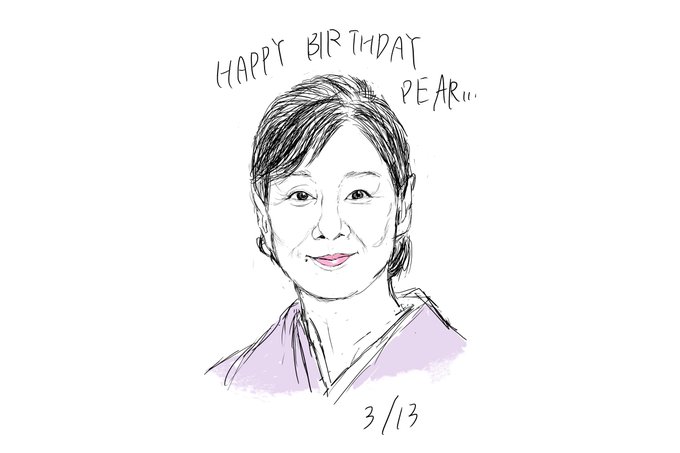 HAPPY BIRTHDAY
DEAR...
3/13